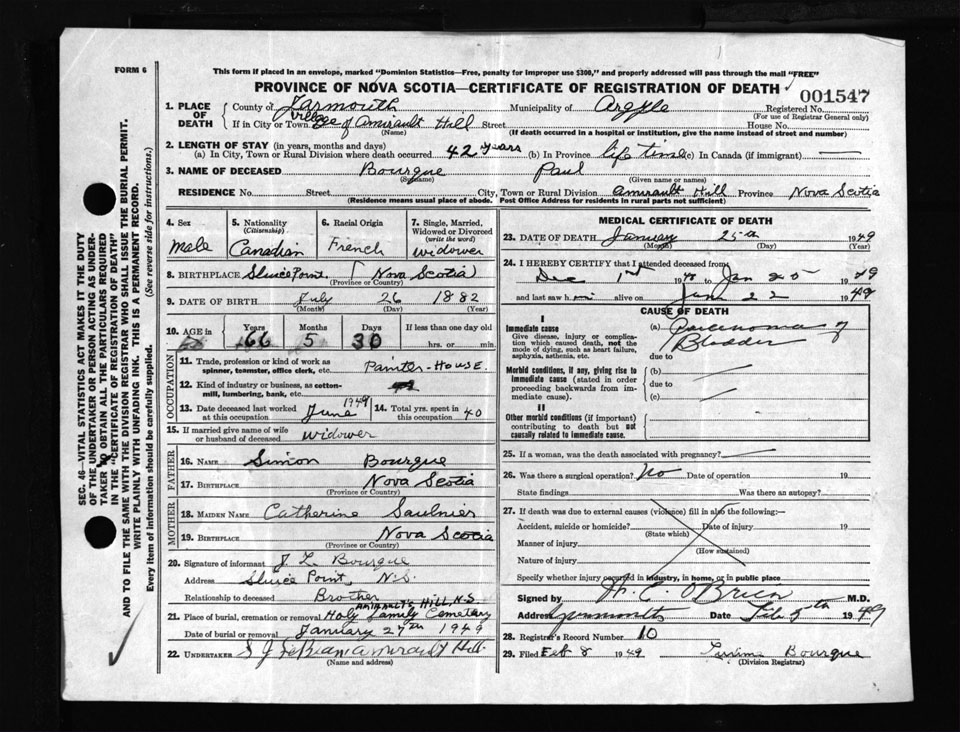 FORM 6
This form if placed in an envelope, marked "Dominion Statistics—Free, penalty for improper use $300," and properly addressed will pass through the mail "FREE"
PROVINCE OF NOVA SCOTIA—CERTIFICATE OF REGISTRATION OF DEATH 001547
1. PLACE OF DEATH County of Yarmouth Municipality of Argyle Registered No.
(For use of Registrar General only)
If in City or Town Village of Amirault Hill Street House No.
(Name) (If death occurred in a hospital or institution, give the name instead of street and number)
2. LENGTH OF STAY (in years, months and days)
(a) In City, Town or Rural Division where death occurred 42 years (b) In Province life time (c) In Canada (if immigrant) —
3. NAME OF DECEASED Bourque Paul
(Surname) (Given name or names)
RESIDENCE No. Street City, Town or Rural Division Amirault Hill Province Nova Scotia
(Residence means usual place of abode. Post Office Address for residents in rural parts not sufficient)
4. Sex 5. Nationality (Citizenship) 6. Racial Origin 7. Single, Married, Widowed or Divorced (write the word)
Male Canadian French widower
8. BIRTHPLACE Sluice Point, Nova Scotia
(Province or Country)
9. DATE OF BIRTH July 26 1882
(Month) (Day) (Year)
10. AGE in Years Months Days If less than one day old
66 5 30 hrs. or min.
OCCUPATION
11. Trade, profession or kind of work as spinner, teamster, office clerk, etc. Painter-House.
12. Kind of industry or business, as cotton-mill, lumbering, bank, etc.
13. Date deceased last worked at this occupation June 194 14. Total yrs. spent in this occupation 40
15. If married give name of wife or husband of deceased widower
FATHER
16. NAME Simon Bourque
17. BIRTHPLACE Nova Scotia
(Province or Country)
MOTHER
18. MAIDEN NAME Catherine Saulnier
19. BIRTHPLACE Nova Scotia
(Province or Country)
20. Signature of informant J. L. Bourque
Address Sluice Point, N.S.
Relationship to deceased Brother
AMIRAULT'S HILL, N.S
21. Place of burial, cremation or removal Holy Family Cemetery
Date of burial or removal January 27th 1949
22. UNDERTAKER S J LeBlanc Amirault Hill.
(Name and address)
MEDICAL CERTIFICATE OF DEATH
23. DATE OF DEATH January 25th 1949
(Month) (Day) (Year)
24. I HEREBY CERTIFY that I attended deceased from
Dec 1st 1948 to Jan 25 1949
and last saw him alive on Jan 22 1949
CAUSE OF DEATH
I
Immediate cause (a) Carcinoma of Bladder
Give disease, injury or complication which caused death, not the mode of dying, such as heart failure, asphyxia, asthenia, etc.
due to
Morbid conditions, if any, giving rise to immediate cause (stated in order proceeding backwards from immediate cause).
(b)
due to
(c)
II
Other morbid conditions (if important) contributing to death but not causally related to immediate cause.
25. If a woman, was the death associated with pregnancy?
26. Was there a surgical operation? No Date of operation 19
State findings Was there an autopsy?
27. If death was due to external causes (violence) fill in also the following:—
Accident, suicide or homicide? Date of injury 19
(State which)
Manner of injury
(How sustained)
Nature of injury
Specify whether injury occurred in industry, in home, or in public place
Signed by H. C. O'Brien M.D.
Address Date Feb 5th 1949
28. Registrar's Record Number 10
29. Filed Feb 8 1949 Bourque
(Division Registrar)
SEC. 46—VITAL STATISTICS ACT MAKES IT THE DUTY
OF THE UNDERTAKER OR PERSON ACTING AS UNDER-
TAKER TO OBTAIN ALL THE PARTICULARS REQUIRED
IN THE "CERTIFICATE OF REGISTRATION OF DEATH"
AND TO FILE THE SAME WITH THE DIVISION REGISTRAR WHO SHALL ISSUE THE BURIAL PERMIT.
WRITE PLAINLY WITH UNFADING INK. THIS IS A PERMANENT RECORD.
Every item of information should be carefully supplied. (See reverse side for instructions.)